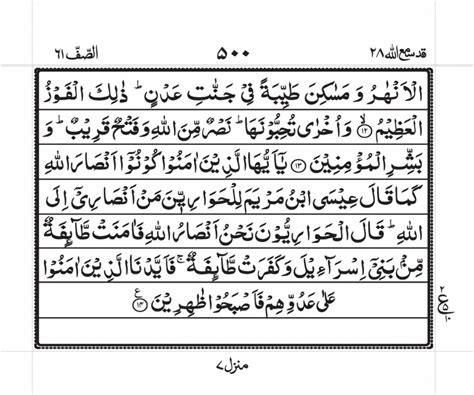 قد سمع الله ٢٨ ٥٠٠ الصّفّ ٦١
الْاَنْهٰرُ وَ مَسٰكِنَ طَيِّبَةً فِیْ جَنّٰتِ عَدْنٍ ؕ ذٰلِكَ الْفَوْزُ
الْعَظِيْمُ ﴿۱۲﴾ وَ اُخْرٰى تُحِبُّوْنَهَا ؕ نَصْرٌ مِّنَ اللّٰهِ وَ فَتْحٌ قَرِيْبٌ ؕ وَ
بَشِّرِ الْمُؤْمِنِيْنَ ﴿۱۳﴾ يٰۤاَيُّهَا الَّذِيْنَ اٰمَنُوْا كُوْنُوْۤا اَنْصَارَ اللّٰهِ
كَمَا قَالَ عِيْسَى ابْنُ مَرْيَمَ لِلْحَوَارِيّٖنَ مَنْ اَنْصَارِیْۤ اِلَى
اللّٰهِ ؕ قَالَ الْحَوَارِيُّوْنَ نَحْنُ اَنْصَارُ اللّٰهِ فَاٰمَنَتْ طَّآئِفَةٌ
مِّنْۢ بَنِیْۤ اِسْرَآءِيْلَ وَ كَفَرَتْ طَّآئِفَةٌ ۚ فَاَيَّدْنَا الَّذِيْنَ اٰمَنُوْا
عَلٰى عَدُوِّهِمْ فَاَصْبَحُوْا ظٰهِرِيْنَ ﴿۱۴﴾ ع
منزل ٧